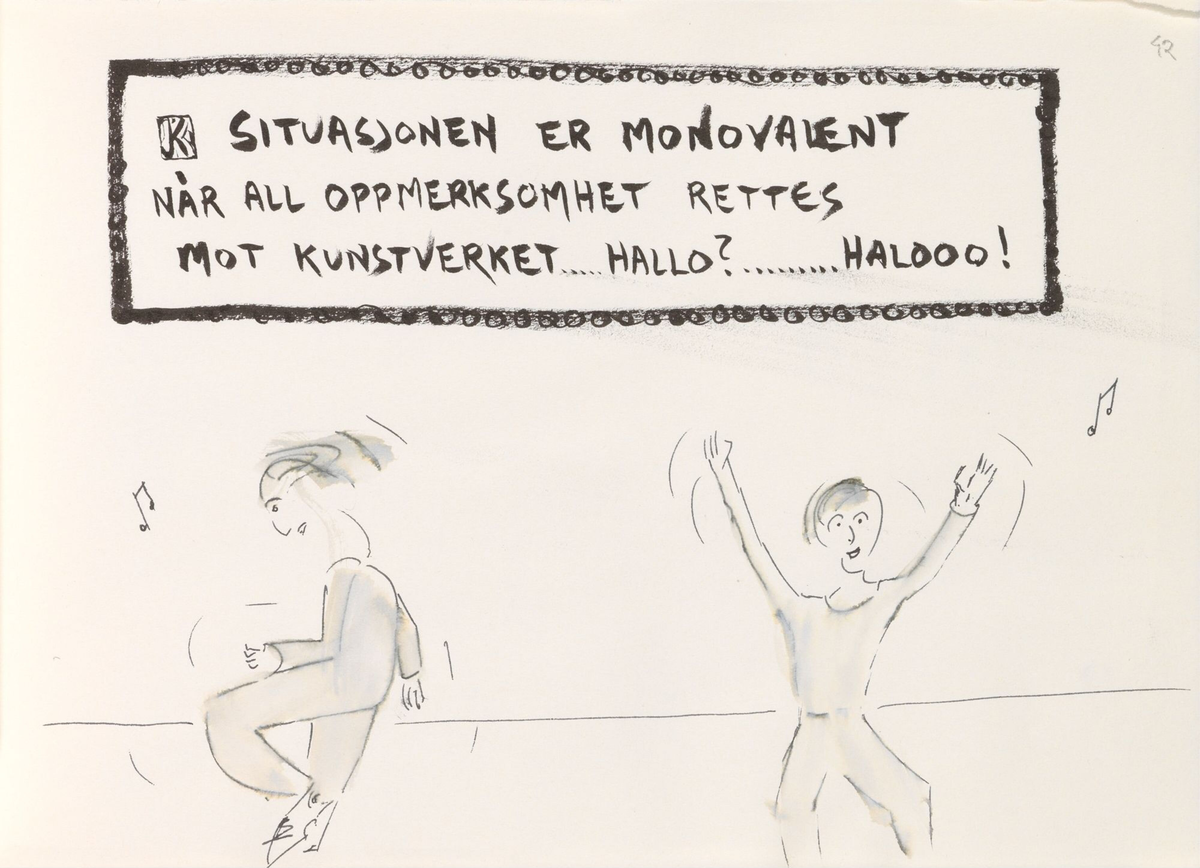 42
K SITUASJONEN ER MONOVALENT
NÅR ALL OPPMERKSOMHET RETTES
MOT KUNSTVERKET..... HALLO?.........HALOOO!